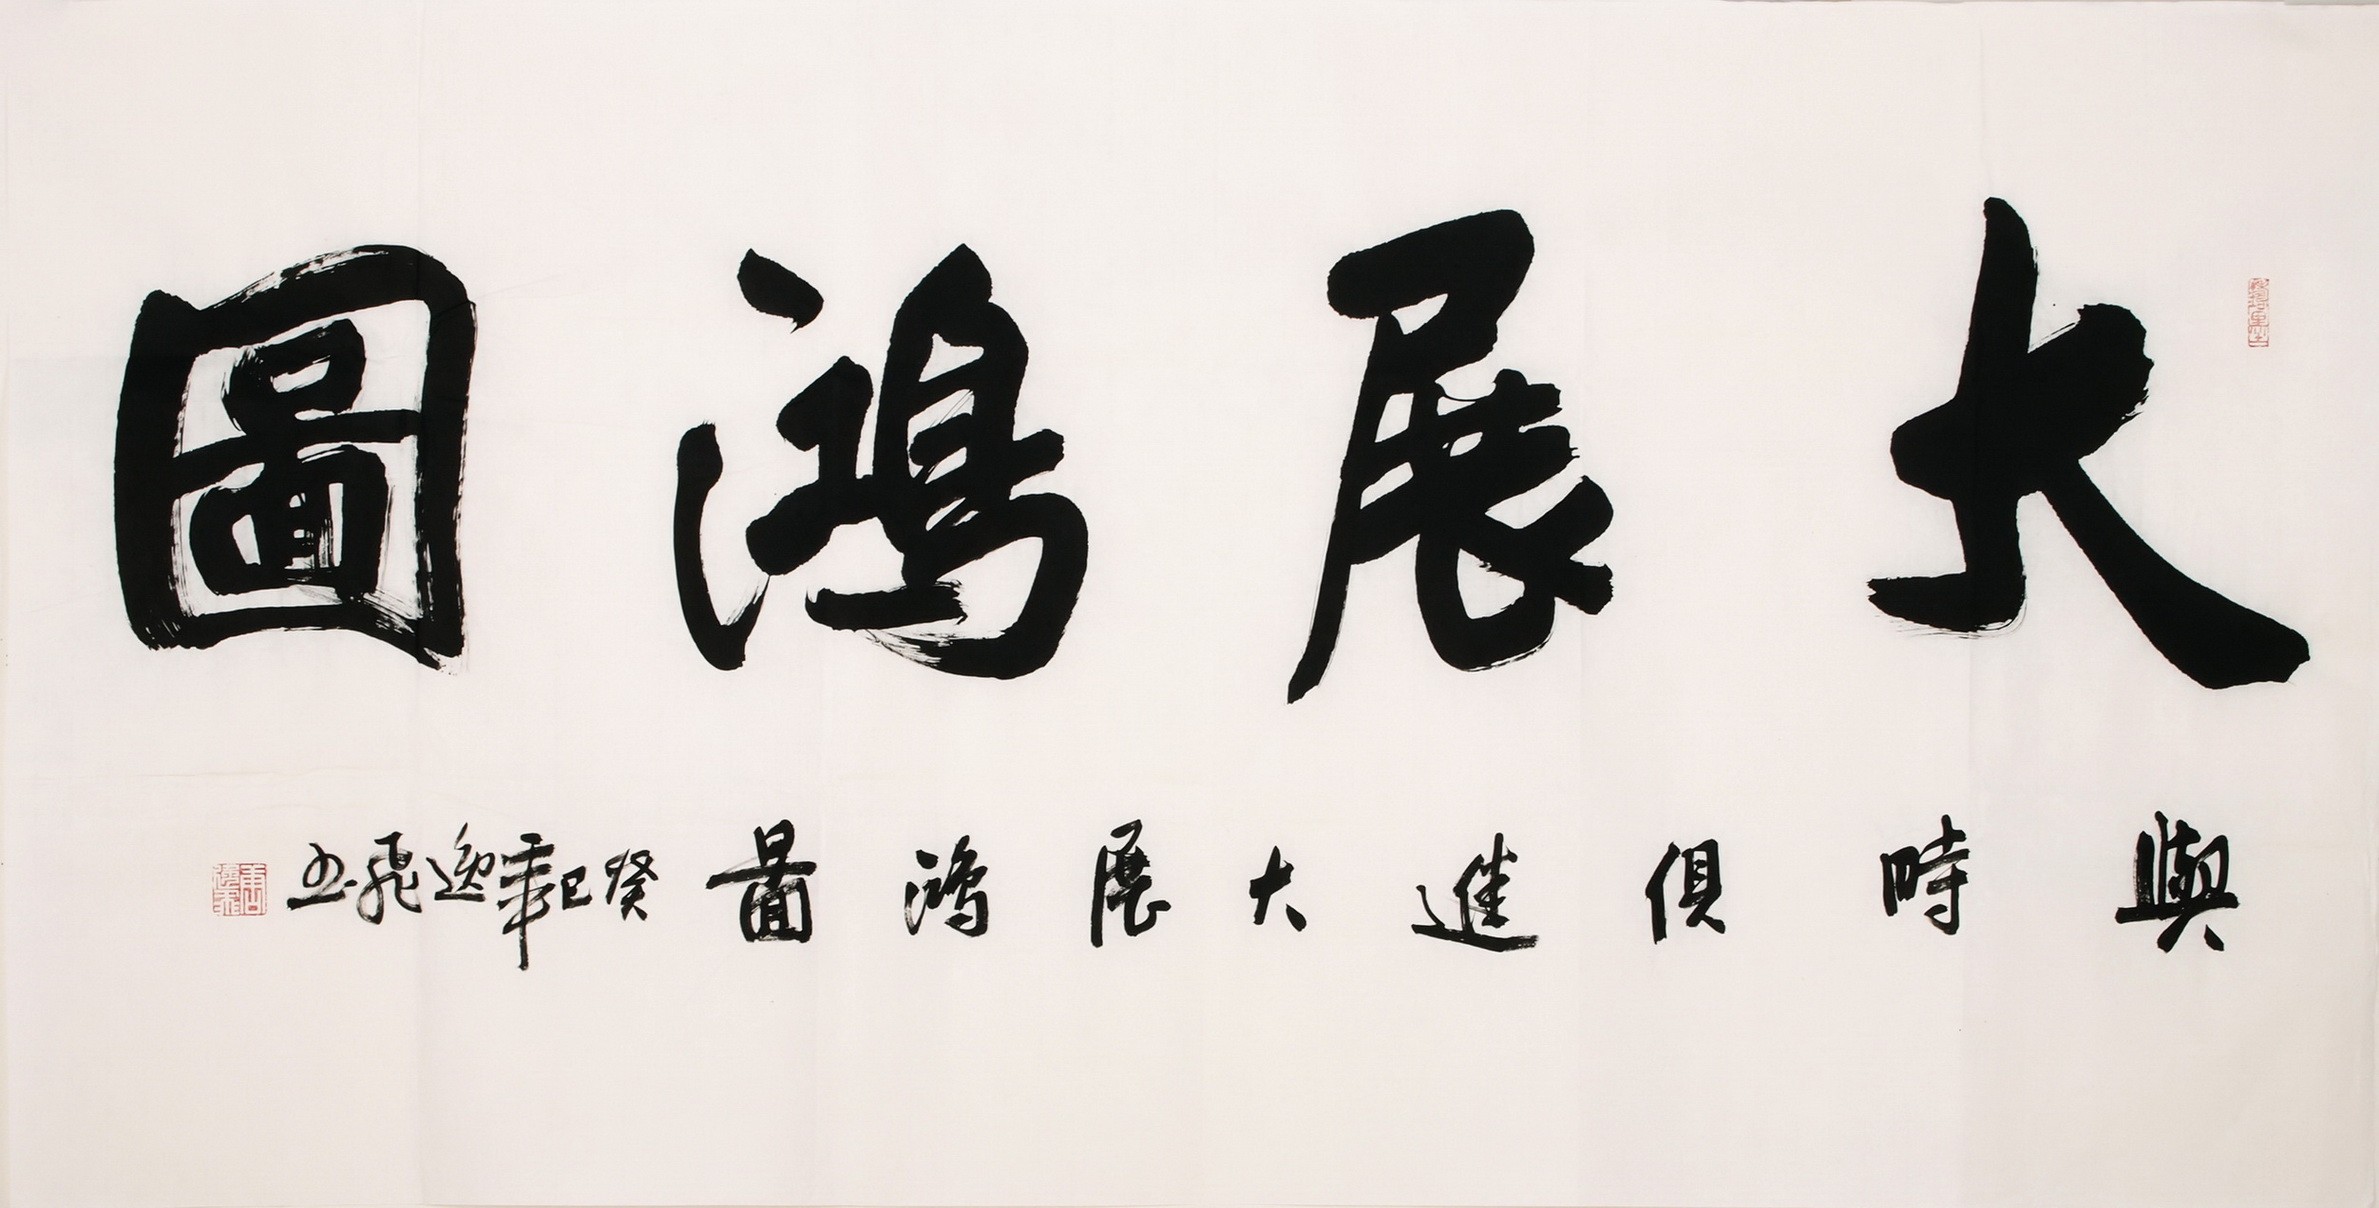 大展鴻圖
與時俱進大展鴻圖癸巳年逸飛书